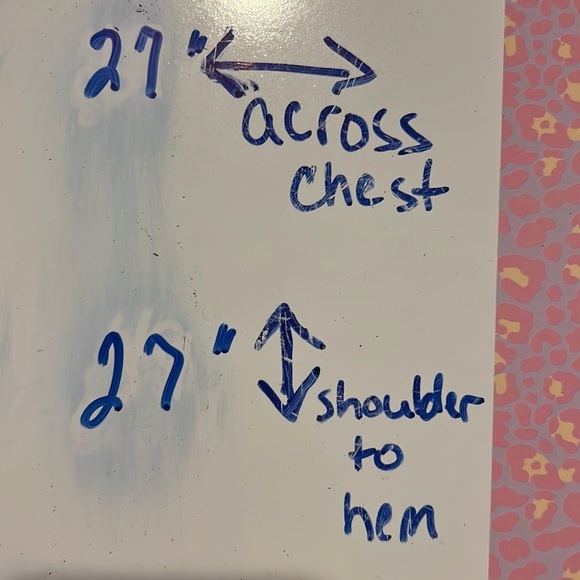 27" ↔
across
chest
27" ↕
shoulder
to
hem